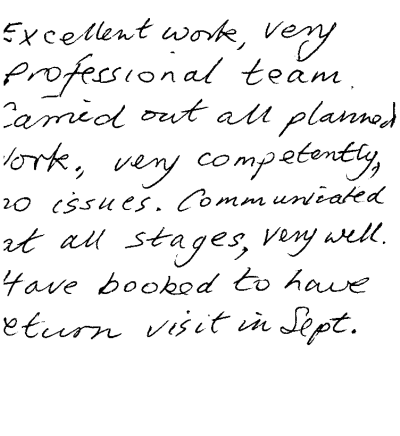 Excellent work, very
Professional team.
Carried out all planned
work, very competently,
no issues. Communicated
at all stages, very well.
Have booked to have
return visit in Sept.